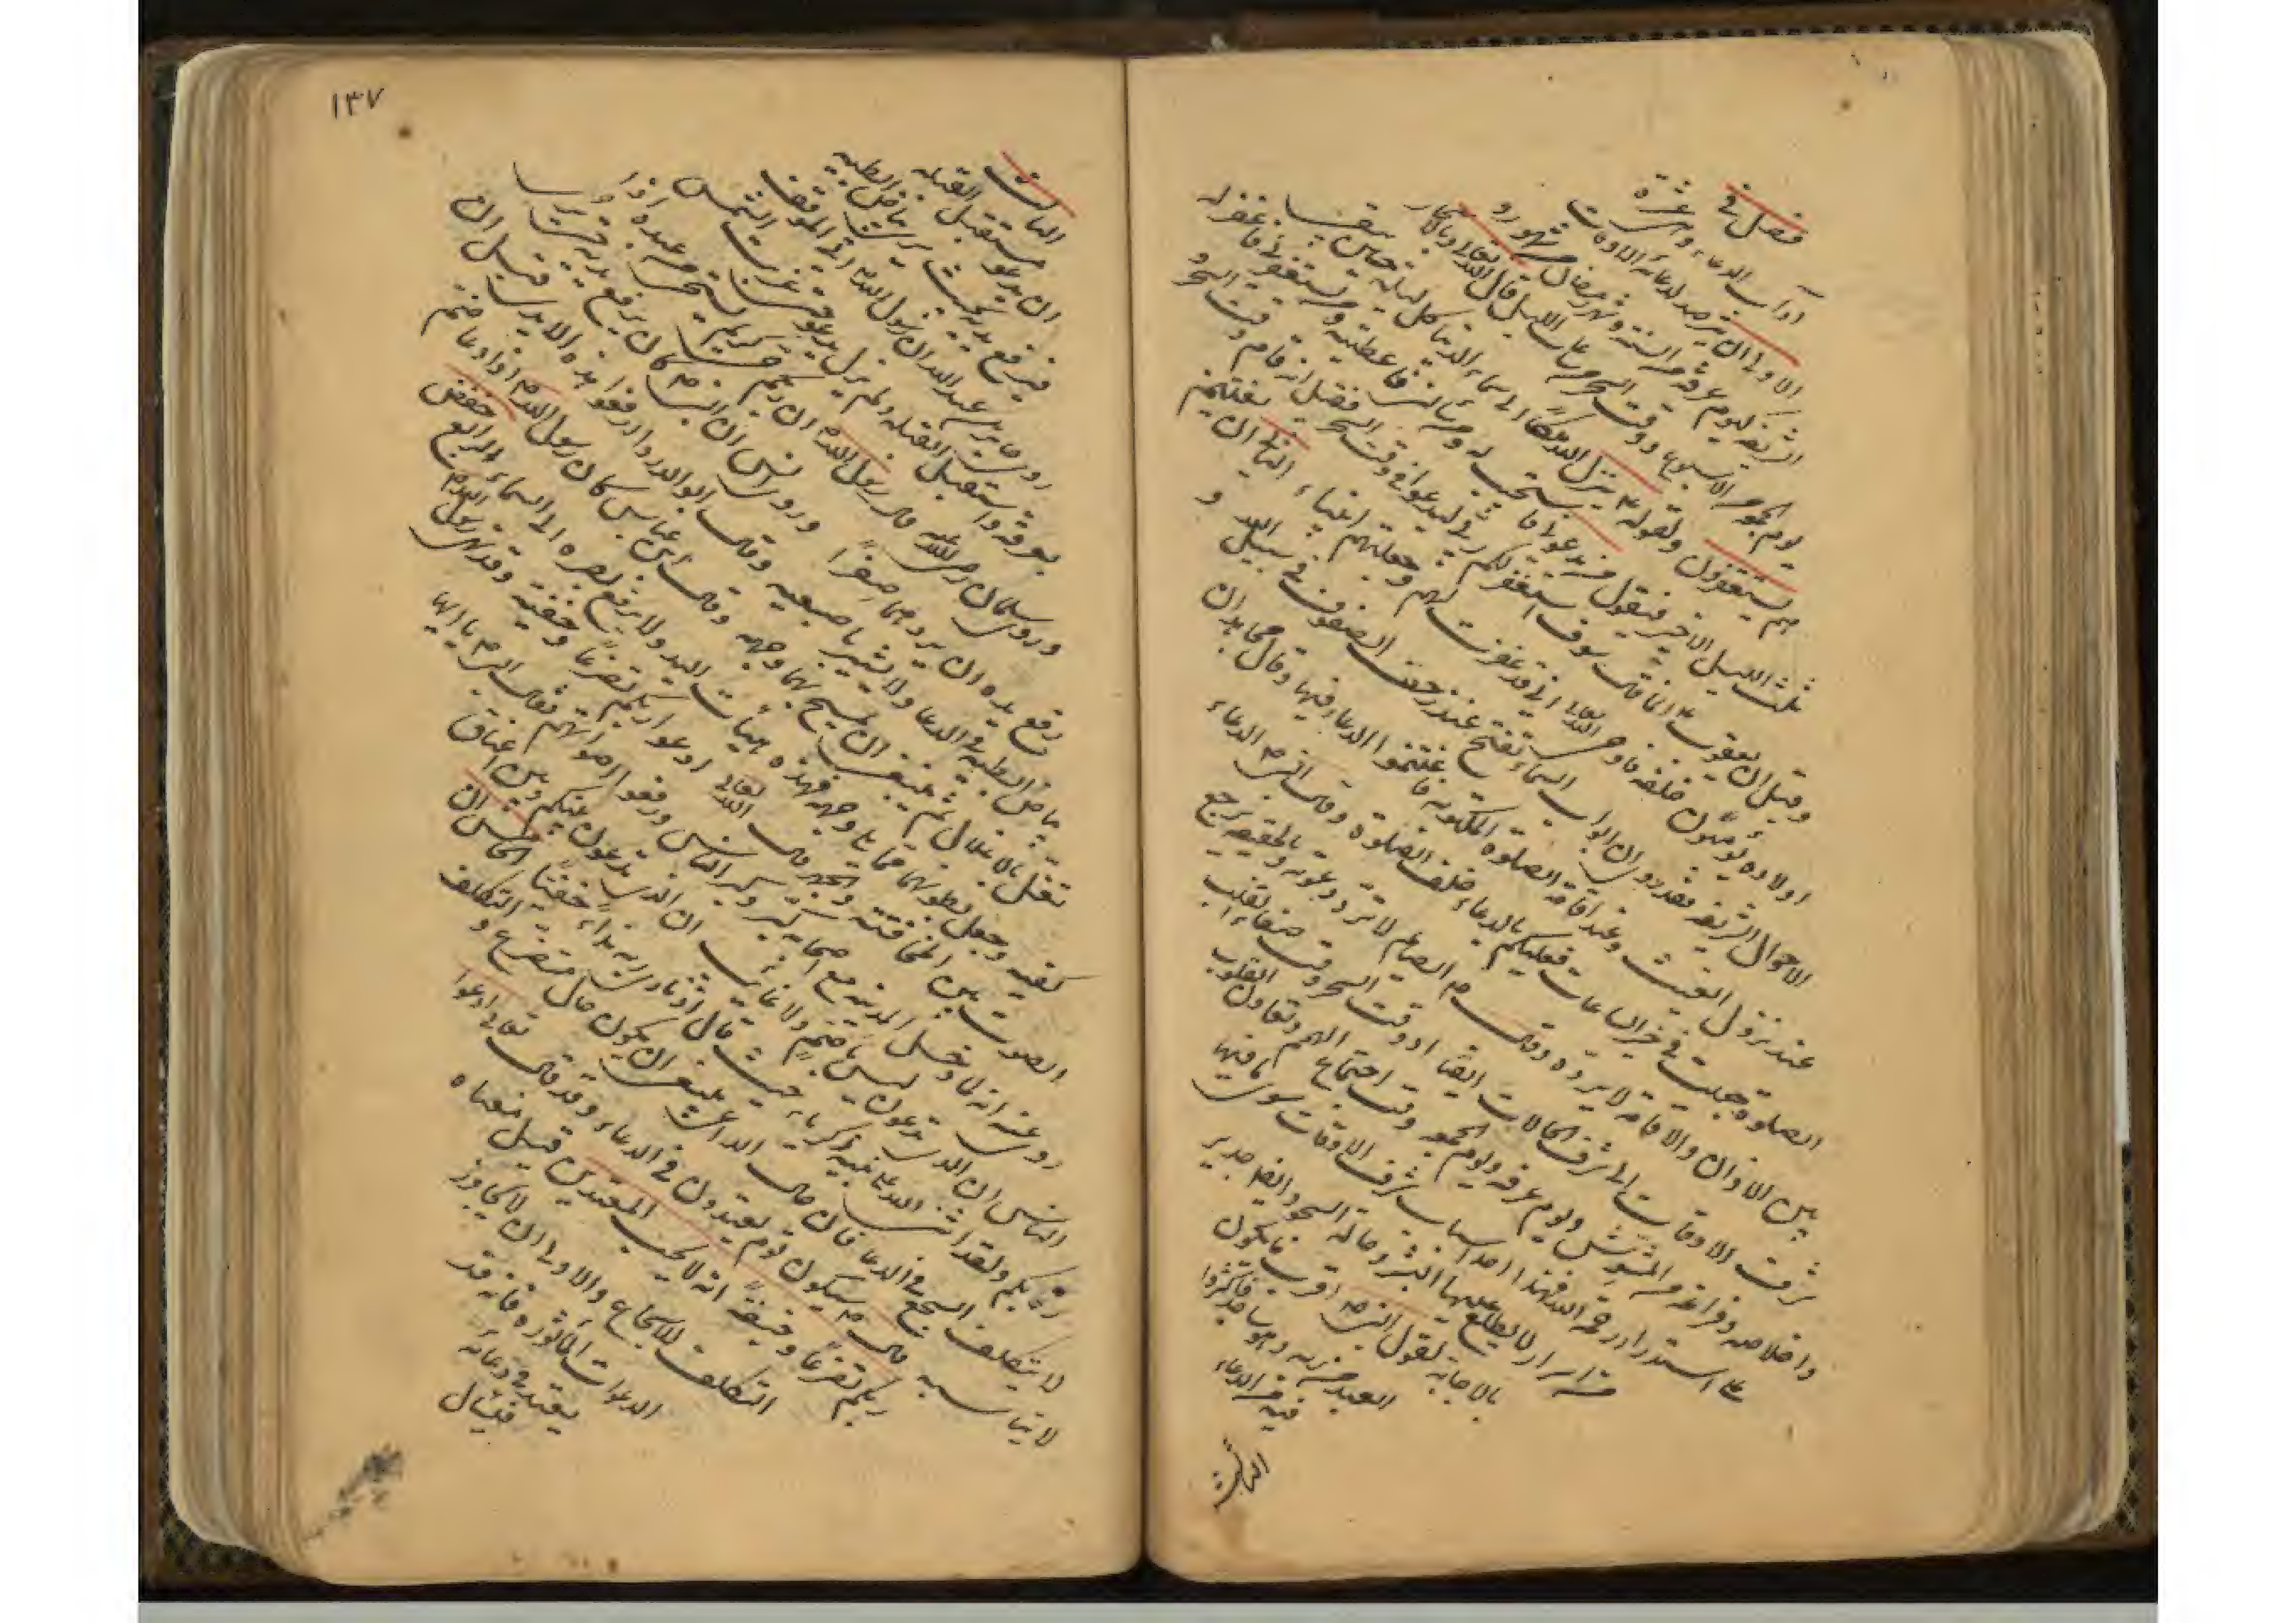 فصل في
آداب الدعاء وهي عشرة
الاول ان يترصد لدعائه الاوقات
الشريفة كيوم عرفة من السنة وشهر رمضان من الشهور و
يوم الجمعة من الاسبوع ووقت السحر من ساعات الليل قال الله تعالى وبالاسحار
هم يستغفرون ولقوله ينزل الله تعالى الى سماء الدنيا كل ليلة حين يبقى
ثلث الليل الاخير فيقول من يدعوني فاستجيب له من يسألني فاعطيه من يستغفرني فاغفر له
وقيل ان يعقوب انما قال سوف استغفر لكم ربي ليدعو في وقت السحر فقيل انه قام وقت السحر و
اولاده يؤمنون خلفه فاوحى الله تعالى اني قد غفرت لهم وجعلتهم انبياء الثاني ان يغتنم
الاحوال الشريفة فقد روي ان ابواب السماء تفتح عند زحف الصفوف في سبيل الله و
عند نزول الغيث وعند اقامة الصلوة المكتوبة فاغتنموا الدعاء فيها وقال مجاهد ان
الصلوة جعلت في خير الساعات فعليكم بالدعاء خلف الصلوة وقال النبي الدعاء
بين الاذان والاقامة لا يرد وقال الصائم لا ترد دعوته وبالحقيقة يرجع
شرف الاوقات الى شرف الحالات ايضا اذ وقت السحر وقت صفاء القلب
واخلاصه وفراغه من المشوش ويوم عرفة ويوم الجمعة وقت اجتماع الهمم وتعاون القلوب
على استدرار رحمة الله فهذا احد اسباب شرف الاوقات سوى ما فيها
من اسرار لا يطلع عليها البشر وحالة السجود ايضا جدير
بالاجابة لقول النبي اقرب ما يكون
العبد من ربه وهو ساجد فاكثروا
فيه من الدعاء
الثالث
١٣٧
الثالث
ان يدعو مستقبل القبلة
فيرفع يديه بحيث يرى بياض ابطيه
روى جابر بن عبد الله ان رسول الله اتى الموقف
بعرفة واستقبل القبلة ولم يزل يدعو حتى غربت الشمس
وروى سلمان رضي الله عنه قال رسول الله ان ربكم كريم يستحيي من عبده اذا
رفع يديه ان يردهما صفرا وروى انس ان النبي كان يرفع يديه حتى يرى
بياض ابطيه في الدعاء ولا يشير باصبعيه وقال ابو الدرداء ارفعوا هذه الايدي قبل ان
تغل بالاغلال ثم ينبغي ان يمسح بهما وجهه وقال ابن عباس كان رسول الله اذا دعا ضم
كفيه وجعل بطونهما مما يلي وجهه فهذه هيئات اليد ولا يرفع بصره الى السماء الرابع خفض
الصوت بين المخافتة والجهر قال الله تعالى ادعوا ربكم تضرعا وخفية وقد نهى رسول الله
روي عنه انه لما دخل المدينة مع اصحابه كبر وكبر الناس ورفعوا اصواتهم فقال النبي يا ايها
الناس ان الذي تدعون ليس باصم ولا غائب ان الذي تدعون بينكم وبين اعناق
ركابكم ولقد اثنى الله على نبيه زكريا حيث قال اذ نادى ربه نداء خفيا الخامس ان
لا يتكلف السجع في الدعاء فان حال الداعي ينبغي ان يكون حال متضرع والتكلف
لا يناسبه قال سيكون قوم يعتدون في الدعاء وقد قال تعالى ادعوا
ربكم تضرعا وخفية انه لا يحب المعتدين قيل معناه
التكلف للاسجاع والاولى ان لا يجاوز
الدعوات الماثورة فانه قد
يعتدي في دعائه
فيسأل